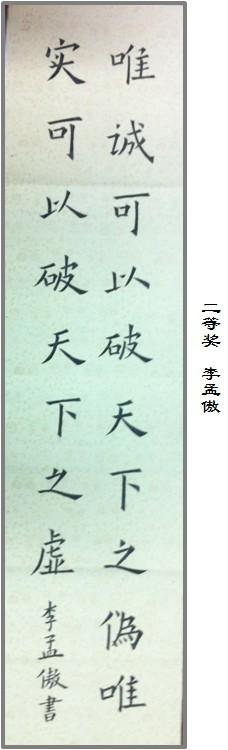 唯诚可以破天下之偽唯
实可以破天下之虚
李孟傲書
二等奖 李孟傲